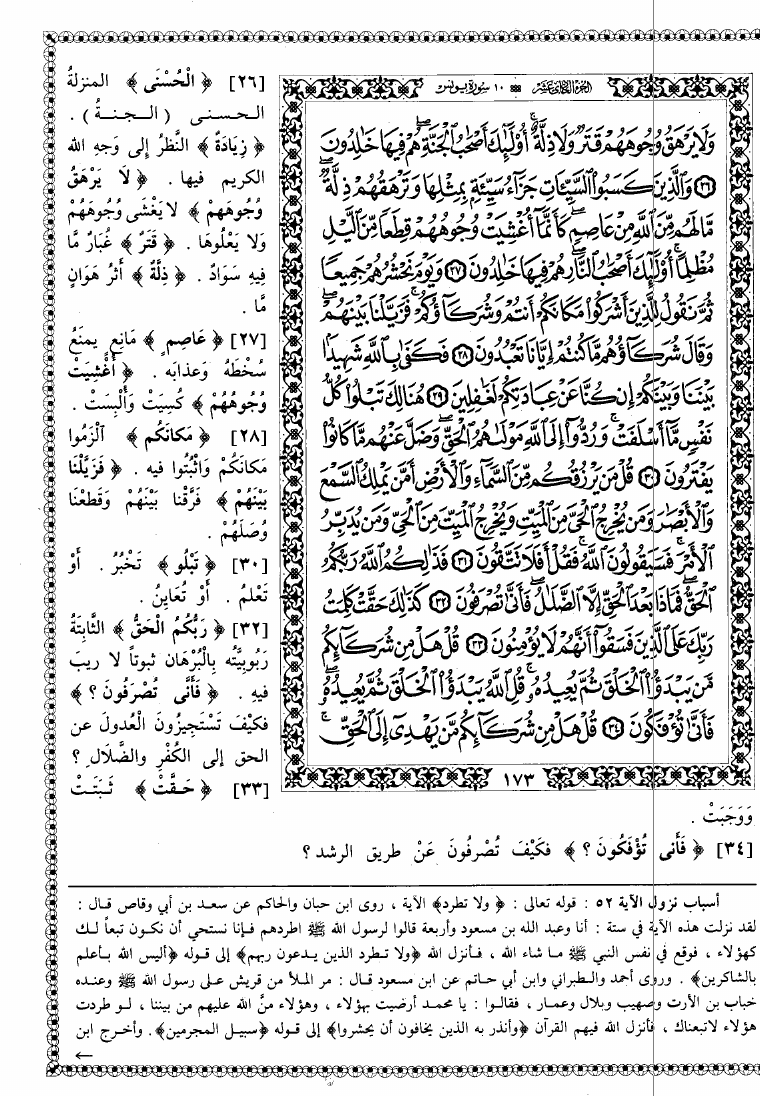 الجزء الحادي عشر ١٠ سورة يونس
وَلَا يَرْهَقُ وُجُوهَهُمْ قَتَرٌ وَلَا ذِلَّةٌ أُوْلَٰٓئِكَ أَصْحَٰبُ الْجَنَّةِ هُمْ فِيهَا خَٰلِدُونَ
٢٦ وَالَّذِينَ كَسَبُوا السَّيِّـَٔاتِ جَزَآءُ سَيِّئَةٍۭ بِمِثْلِهَا وَتَرْهَقُهُمْ ذِلَّةٌ
مَّا لَهُم مِّنَ اللَّهِ مِنْ عَاصِمٍ كَأَنَّمَآ أُغْشِيَتْ وُجُوهُهُمْ قِطَعًا مِّنَ الَّيْلِ
مُظْلِمًا أُوْلَٰٓئِكَ أَصْحَٰبُ النَّارِ هُمْ فِيهَا خَٰلِدُونَ ٢٧ وَيَوْمَ نَحْشُرُهُمْ جَمِيعًا
ثُمَّ نَقُولُ لِلَّذِينَ أَشْرَكُوا مَكَانَكُمْ أَنتُمْ وَشُرَكَآؤُكُمْ فَزَيَّلْنَا بَيْنَهُمْ
وَقَالَ شُرَكَآؤُهُم مَّا كُنتُمْ إِيَّانَا تَعْبُدُونَ ٢٨ فَكَفَىٰ بِاللَّهِ شَهِيدًۢا
بَيْنَنَا وَبَيْنَكُمْ إِن كُنَّا عَنْ عِبَادَتِكُمْ لَغَٰفِلِينَ ٢٩ هُنَالِكَ تَبْلُوا كُلُّ
نَفْسٍ مَّآ أَسْلَفَتْ وَرُدُّوٓا إِلَى اللَّهِ مَوْلَىٰهُمُ الْحَقِّ وَضَلَّ عَنْهُم مَّا كَانُوا
يَفْتَرُونَ ٣٠ قُلْ مَن يَرْزُقُكُم مِّنَ السَّمَآءِ وَالْأَرْضِ أَمَّن يَمْلِكُ السَّمْعَ
وَالْأَبْصَٰرَ وَمَن يُخْرِجُ الْحَيَّ مِنَ الْمَيِّتِ وَيُخْرِجُ الْمَيِّتَ مِنَ الْحَيِّ وَمَن يُدَبِّرُ
الْأَمْرَ فَسَيَقُولُونَ اللَّهُ فَقُلْ أَفَلَا تَتَّقُونَ ٣١ فَذَٰلِكُمُ اللَّهُ رَبُّكُمُ
الْحَقُّ فَمَاذَا بَعْدَ الْحَقِّ إِلَّا الضَّلَٰلُ فَأَنَّىٰ تُصْرَفُونَ ٣٢ كَذَٰلِكَ حَقَّتْ كَلِمَتُ
رَبِّكَ عَلَى الَّذِينَ فَسَقُوٓا أَنَّهُمْ لَا يُؤْمِنُونَ ٣٣ قُلْ هَلْ مِن شُرَكَآئِكُم
مَّن يَبْدَؤُا الْخَلْقَ ثُمَّ يُعِيدُهُۥ قُلِ اللَّهُ يَبْدَؤُا الْخَلْقَ ثُمَّ يُعِيدُهُۥ
فَأَنَّىٰ تُؤْفَكُونَ ٣٤ قُلْ هَلْ مِن شُرَكَآئِكُم مَّن يَهْدِىٓ إِلَى الْحَقِّ
١٧٣
[٢٦] ﴿ الْحُسْنَى ﴾ المنزلةُ
الحسنى (الجنةُ) .
﴿ زِيَادَةٌ ﴾ النَّظرُ إلى وَجهِ الله
الكريم فيها . ﴿ لَا يَرْهَقُ
وُجُوهَهُمْ ﴾ لا يَغْشَى وُجُوهَهُمْ
وَلا يَعْلُوهَا . ﴿ قَتَرٌ ﴾ غُبَارٌ مَّا
فِيهِ سَوَادٌ . ﴿ ذِلَّةٌ ﴾ أثرُ هَوَانٍ
مَّا .
[٢٧] ﴿ عَاصِمٍ ﴾ مَانِعٍ يمنَعُ
سُخْطَهُ وَعذابَه . ﴿ أُغْشِيَتْ
وُجُوهُهُمْ ﴾ كُسِيَتْ وَأُلْبِسَتْ .
[٢٨] ﴿ مَكَانَكُم ﴾ الْزَمُوا
مَكانَكُمْ وَاثْبُتُوا فيه . ﴿ فَزَيَّلْنَا
بَيْنَهُمْ ﴾ فَرَّقْنا بَيْنَهُمْ وَقَطعْنَا
وُصَلَهُمْ .
[٣٠] ﴿ تَبْلُو ﴾ تَخْبُرُ . أَوْ
تَعْلمُ . أَوْ تُعَايِنُ .
[٣٢] ﴿ رَبُّكُمُ الْحَقُّ ﴾ الثَّابِتَةُ
رَبُوبِيَّتُه بِالْبُرْهَانِ ثبوتاً لا رَيبَ
فيهِ . ﴿ فَأَنَّى تُصْرَفُونَ ؟ ﴾
فَكَيْفَ تَسْتَجِيزُونَ الْعُدولَ عن
الحق إلى الكُفْرِ والضَّلَالِ ؟
[٣٣] ﴿ حَقَّتْ ﴾ ثَبَتَتْ
وَوَجَبَتْ .
[٣٤] ﴿ فَأَنى تُؤْفَكُونَ ؟ ﴾ فكَيْفَ تُصْرفُونَ عَنْ طريق الرشد ؟
أسباب نزول الآية ٥٢ : قوله تعالى : ﴿ ولا تطرد﴾ الآية ، روى ابن حبان والحاكم عن سعد بن أبي وقاص قال :
لقد نزلت هذه الآية في ستة : أنا وعبد الله بن مسعود وأربعة قالوا لرسول الله ﷺ اطردهم فإنا نستحي أن نكون تبعاً لك
كهؤلاء ، فوقع في نفس النبي ﷺ ما شاء الله ، فأنزل الله ﴿ولا تطرد الذين يدعون ربهم﴾ إلى قوله ﴿أليس الله بأعلم
بالشاكرين﴾ . وروى أحمد والطبراني وابن أبي حاتم عن ابن مسعود قال : مر الملأ من قريش على رسول الله ﷺ وعنده
خباب بن الأرت وصهيب وبلال وعمار ، فقالوا : يا محمد أرضيت بهؤلاء ، وهؤلاء منَّ الله عليهم من بيننا ، لو طردت
هؤلاء لاتبعناك ، فأنزل الله فيهم القرآن ﴿وأنذر به الذين يخافون أن يحشروا﴾ إلى قوله ﴿سبيل المجرمين﴾ . وأخرج ابن
←